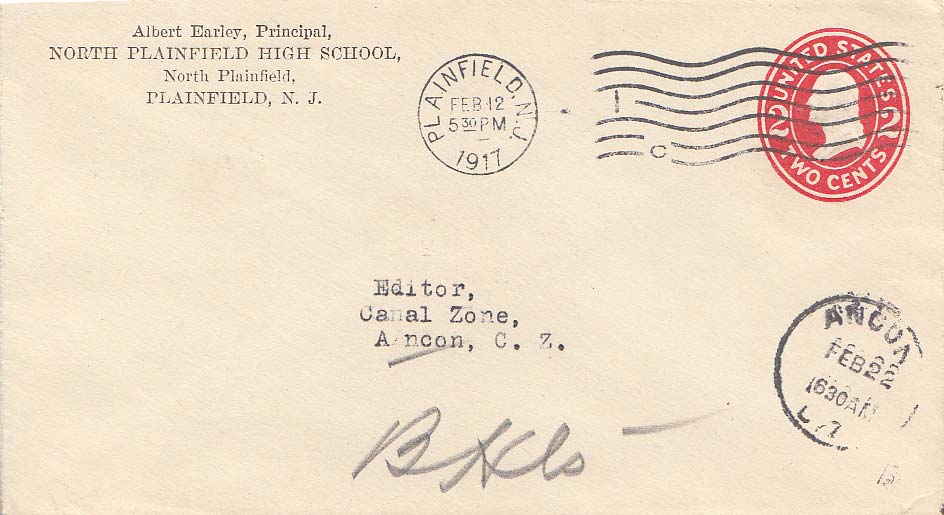 Albert Earley, Principal,
NORTH PLAINFIELD HIGH SCHOOL,
North Plainfield,
PLAINFIELD, N. J.
PLAINFIELD, N.J.
FEB 12
5 30 PM
1917
UNITED STATES
2 2
TWO CENTS
Editor,
Canal Zone,
A/ncon, C. Z.
FEB 22
630 AM